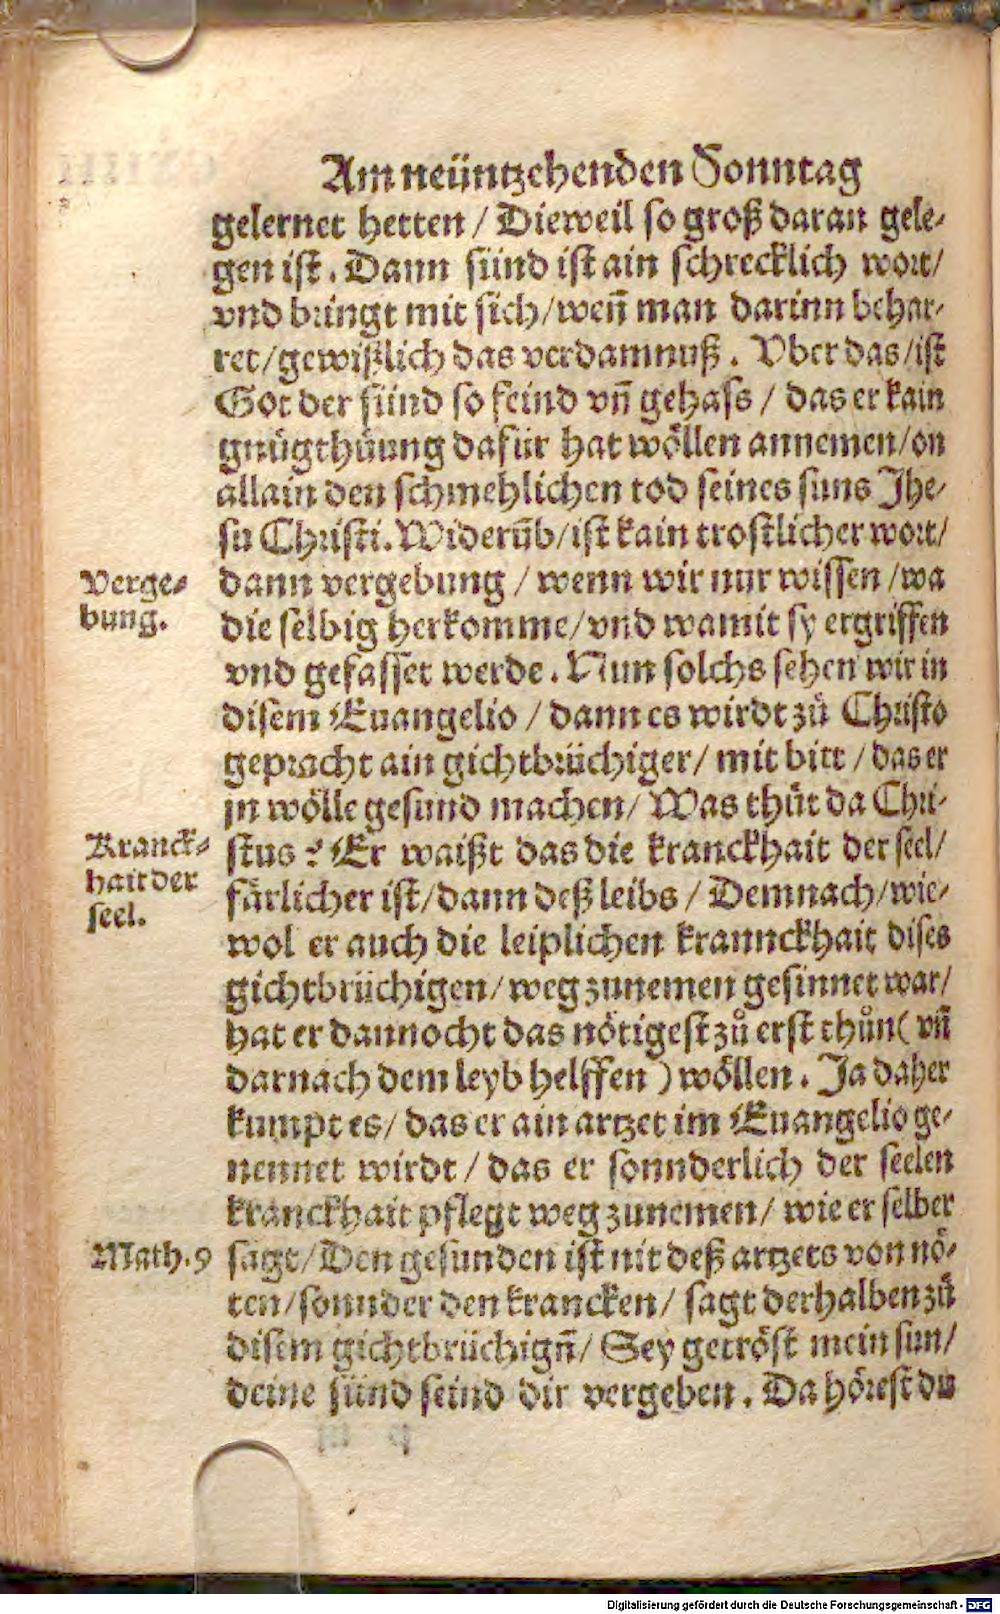 Am neüntzehenden Sonntag
gelernet hetten / Dieweil so groß daran gele-
gen ist. Dann sünd ist ain schrecklich wort/
vnd bringt mit sich/wen̄ man darinn behar-
ret/gewißlich das verdamnuß. Vber das/ist
Got der sünd so feind vn̄ gehass / das er kain
gnůgthůung dafür hat wöllen annemen/on
allain den schmehlichen tod seines suns Jhe-
su Christi. Widerūb/ist kain trostlicher wort/
Verge-
bung.
dann vergebung / wenn wir nur wissen /wa
die selbig herkomme/vnd wamit sy ergriffen
vnd gefasset werde. Nun solchs sehen wir in
disem Euangelio / dann es wirdt zů Christo
gepracht ain gichtbrüchiger/ mit bitt / das er
jn wölle gesund machen/ Was thůt da Chri-
Kranck-
hait der
seel.
stus? Er waißt das die kranckhait der seel/
färlicher ist/dann deß leibs / Demnach/wie-
wol er auch die leiplichen krannckhait dises
gichtbrüchigen/weg zunemen gesinnet war/
hat er dannocht das nötigest zů erst thůn( vn̄
darnach dem leyb helffen ) wöllen. Ja daher
kumpt es/ das er ain artzet im Euangelio ge-
nennet wirdt / das er sonnderlich der seelen
kranckhait pflegt weg zunemen/ wie er selber
Math. 9
sagt/Den gesunden ist nit deß artzets von nö-
ten/sonnder den krancken/ sagt derhalben zů
disem gichtbrüchign̄/ Sey getröst mein sun/
deine sünd seind dir vergeben. Da hörest du
Digitalisierung gefördert durch die Deutsche Forschungsgemeinschaft - DFG